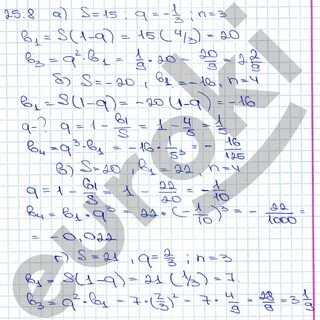 25.8 а) S=15 ; q=-1/3 ; n=3
b₁ = S(1-q) = 15(4/3) = 20
b₃ = q²·b₁ = 1/9·20 = 20/9 = 2 2/9
б) S=-20, b₁=-16, n=4
b₁ = S(1-q) = -20(1-q) = -16
q-? q = 1 - b₁/S = 1 - 4/5 = 1/5
b₄ = q³·b₁ = -16·1/5³ = -16/125
в) S=20, b₁=22, n=4
q = 1 - b₁/S = 1 - 22/20 = -1/10
b₄ = b₁·q³ = 22·(-1/10)³ = -22/1000 =
= -0,022
г) S=21, q=2/3 ; n=3
b₁ = S(1-q) = 21(1/3) = 7
b₃ = q²·b₁ = 7·(2/3)² = 7·4/9 = 28/9 = 3 1/9
euroki